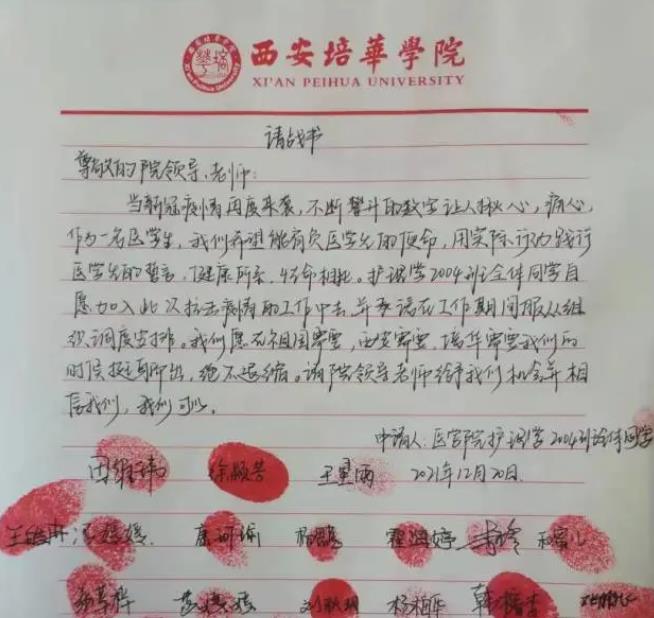 西安培華學院
XI'AN PEIHUA UNIVERSITY
请战书
尊敬的院领导、老师:
当新冠疫情再度来袭,不断攀升的数字让人揪心,痛心,
作为一名医学生,我们希望能肩负医学生的使命,用实际行动践行
医学生的誓言,健康所系,生命相托。护理学2004班全体同学自
愿加入此次抗击疫情的工作中去,并承诺在工作期间服从组
织调度安排。我们愿在祖国需要,西安需要,培华需要我们的
时候挺身而出,绝不退缩。请院领导老师给予我们机会并相
信我们,我们可以。
申请人:医学院护理学2004班全体同学
田维玮 徐颖芳 王星雨 2021年12月20日.